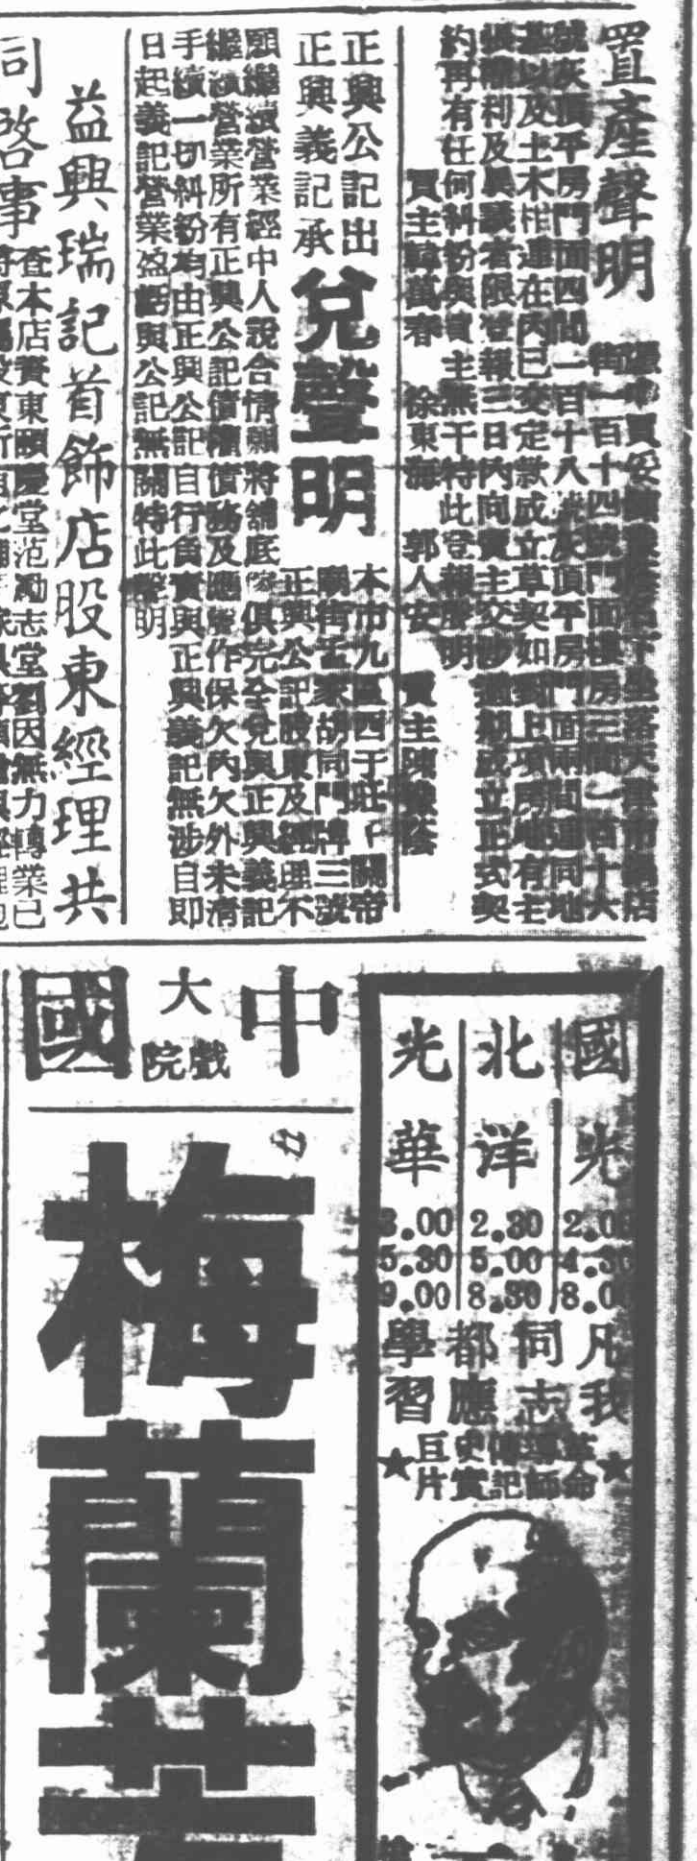 置產聲明
街一百十四號門面樓房三間一百十六
號灰頂平房門面四間一百十八號灰頂平房門面兩間連同地
基以及土木相連在內已交定款成立草契如對上項房地有主
張權利及異議者限登報三日內向賣主交涉逾期成立正式契
約再有任何糾紛與買主無干特此登報聲明
買主韓萬春 徐東海 郭人安 賣主陳
正興公記出
正興義記承
兌聲明
本市九區四于莊戶關帝
廟街孟家胡同門牌三號
正興公記股東及經理不
願繼續營業經中人說合情願將舖底傢俱完全兌與正興義記
繼續營業所有正興公記債權債務及應響作保欠內欠外未清
手續一切糾紛均由正興公記自行負責與正興義記無涉自即
日起義記營業盈虧與公記無關特此聲明
益興瑞記首飾店股東經理共
同啓事
查本店資東頤慶堂范勵志堂劉因無力轉業已
國光
2.00
4.30
8.00
北洋
2.30
5.00
8.30
光華
3.00
5.30
9.00
凡我
同志
都應
學習
★革命導師傳記史實巨片★
中國
大戲院
梅蘭芳